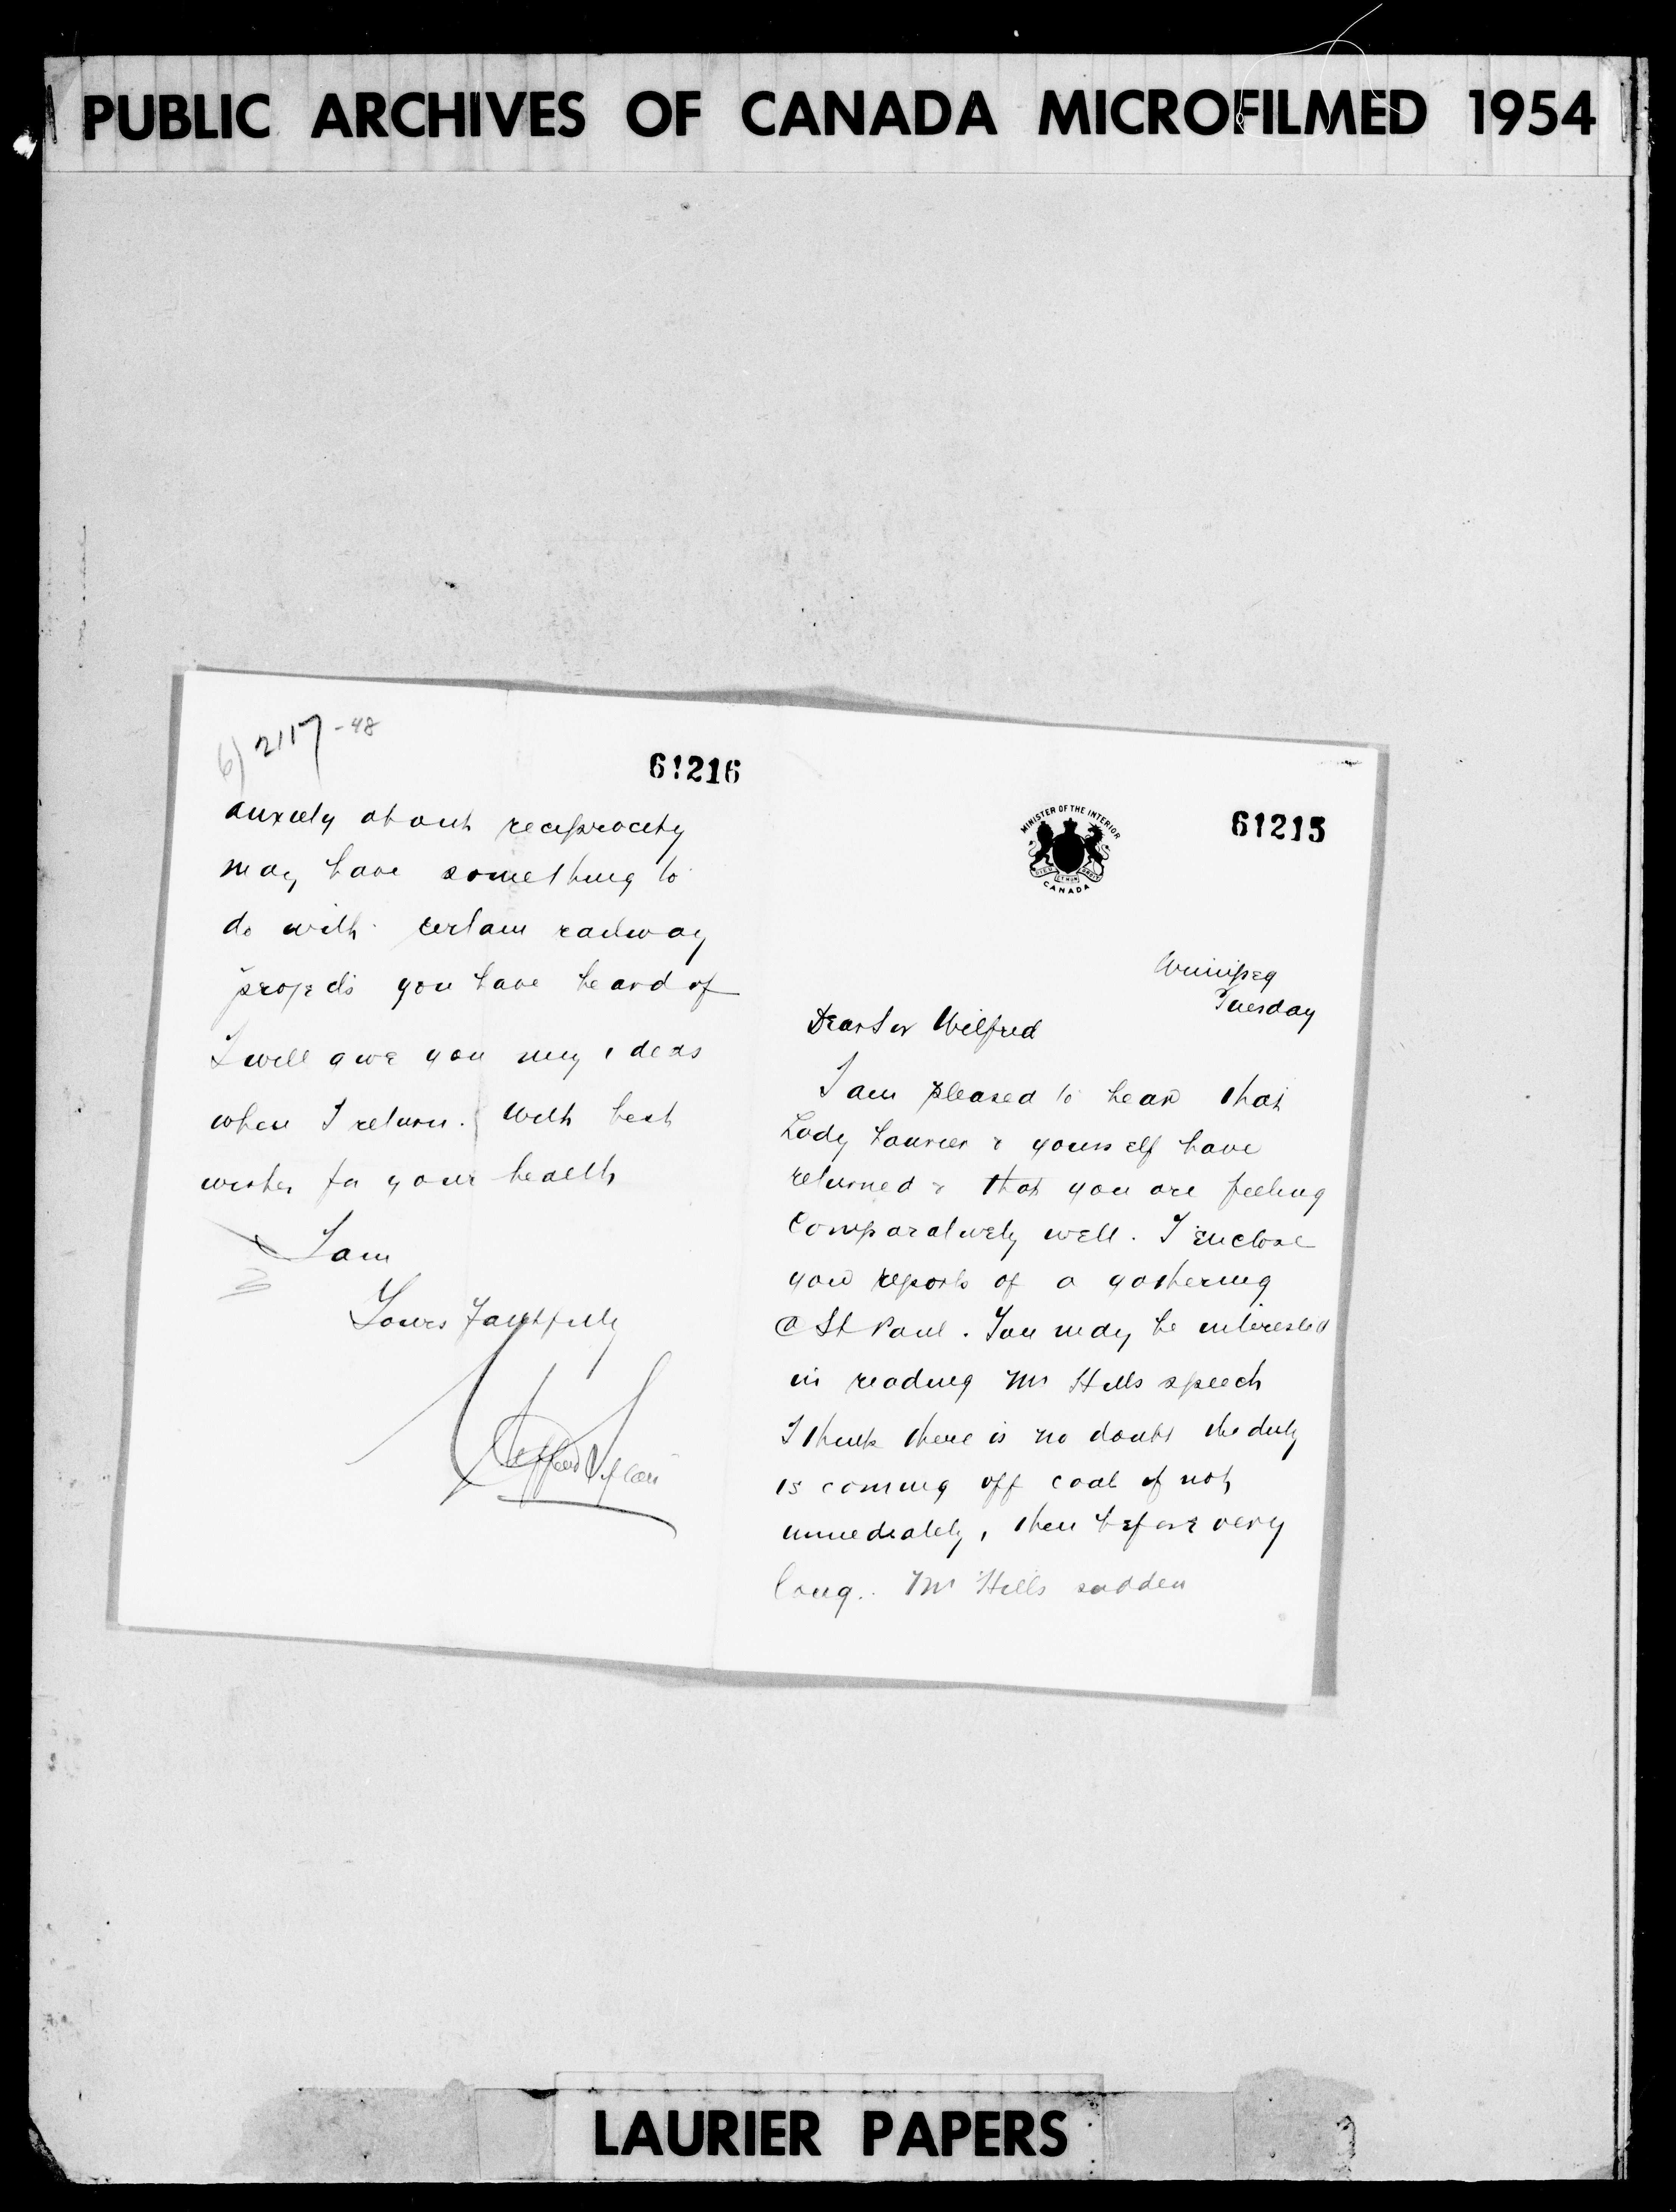 PUBLIC ARCHIVES OF CANADA MICROFILMED 1954
61215
MINISTER OF THE INTERIOR
CANADA
Winnipeg
Tuesday
Dear Sir Wilfred
I am pleased to hear that
Lady Laurier & yourself have
returned & that you are feeling
comparatively well. I enclose
you reports of a gathering
@ St Paul. You may be interested
in reading Mr Hills speech
I think there is no doubt the duty
is coming off coal if not
immediately, then before very
long. Mr Hills sudden
2117-48
61216
anxiety about reciprocity
may have something to
do with certain railway
projects you have heard of
I will give you my ideas
when I return. With best
wishes for your health
I am
Yours Faithfully
Clifford Sifton
LAURIER PAPERS